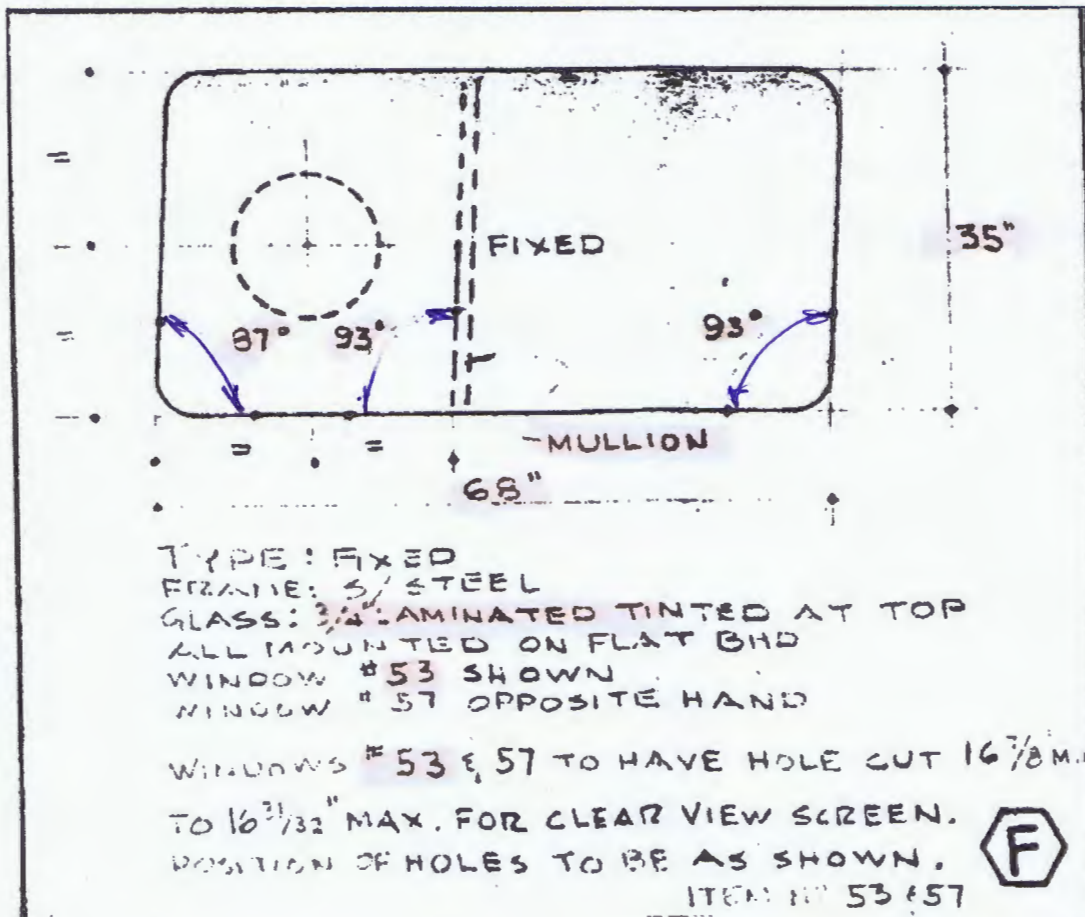 FIXED
35"
87°
93°
93°
=
=
=
=
MULLION
68"
TYPE: FIXED
FRAME: S/STEEL
GLASS: 3/4" LAMINATED TINTED AT TOP
ALL MOUNTED ON FLAT BHD
WINDOW #53 SHOWN
WINDOW #57 OPPOSITE HAND
WINDOWS #53 & 57 TO HAVE HOLE CUT 16 7/8 M
TO 16 31/32" MAX. FOR CLEAR VIEW SCREEN.
POSITION OF HOLES TO BE AS SHOWN.
F
ITEM Nº 53 & 57